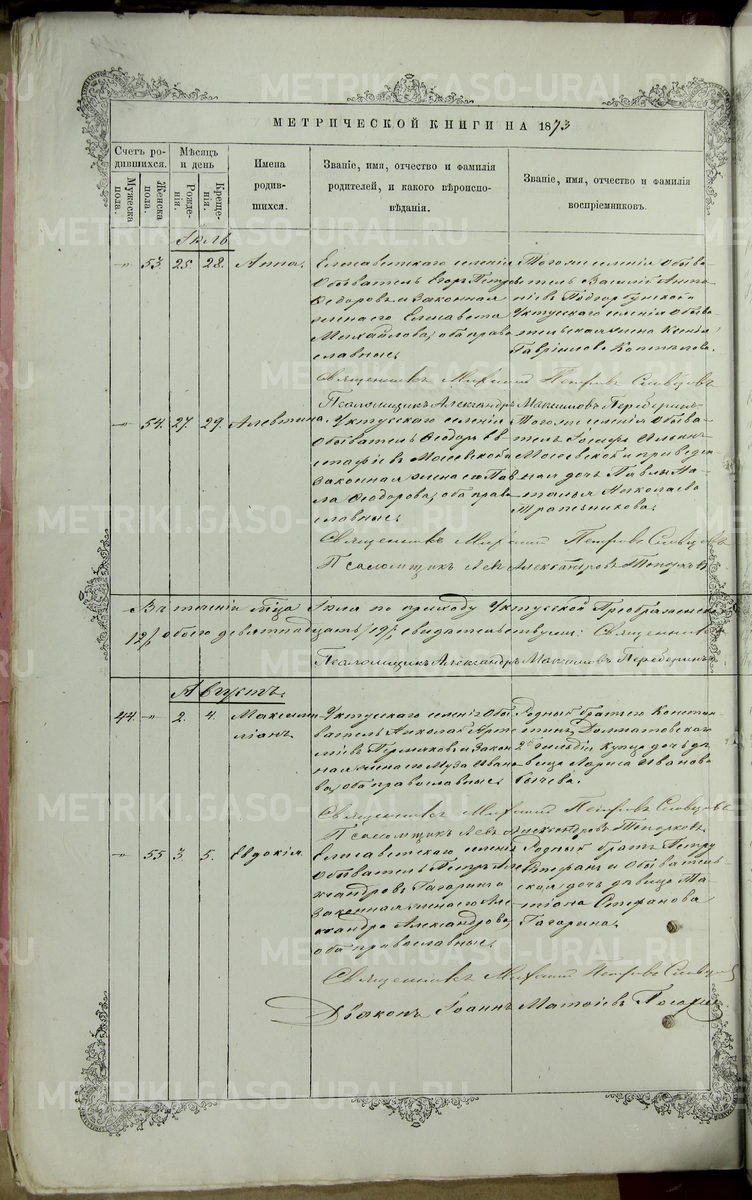 МЕТРИЧЕСКОЙ КНИГИ НА 1873
Счетъ ро-
дившихся.
Мужеска
пола.
Женска
пола.
Мѣсяцъ
и день
Рожде-
нія.
Креще-
нія.
Имена
родив-
шихся.
Званіе, имя, отчество и фамилія
родителей, и какого вѣроиспо-
вѣданія.
Званіе, имя, отчество и фамилія
воспріемниковъ.
Іюль
„ 53. 25. 28. Анна.
Елисаветскаго селенія
Обыватель Егоръ Петровъ
Ѳедоровъ и законная
жена его Елисавета
Михайлова, оба право
славные.
Тогоже селенія Обыва
тель Василій Анто
ніевъ
Уктусскаго селенія обыва
тельская жена Ксенія
Гавріилова
Священникъ Михаилъ Петровъ Словцовъ
Псаломщикъ Александръ Максимовъ Переберинъ
„ 54. 27. 29. Алевтина.
Уктусскаго селенія
Обыватель Ѳеодоръ Ев
стафіевъ
законная жена его Пав
ла Ѳеодорова, оба право
славные.
Тогоже селенія Обыва
тель Іосифъ
ная дочь Павлы На
талья Николаева
Трапезникова.
Священникъ Михаилъ Петровъ Словцовъ
Псаломщикъ Левъ Александровъ Топорковъ
Въ теченіи м-ца Іюля по приходу Уктусской Преображенской
12/ обоего девятнадцать /19/, свидѣтельствуемъ: Священникъ
Псаломщикъ Александръ Максимовъ Переберинъ
Августъ.
44. „ 2. 4. Максими
ліанъ
Уктусскаго селенія Обы
ватель Николай Арте
міевъ Пермяковъ и закон
ная жена его Муза Ивано
ва, оба православные.
Родный братъ его Констан
тинъ, Долматовскаго
2й гильдіи купца дочь дѣ
вица Лариса Иванова
Бычева.
Священникъ Михаилъ Петровъ Словцовъ
Псаломщикъ Левъ Александровъ Топорковъ
„ 55 3. 5. Евдокія.
Елисаветскаго селенія
Обыватель Петръ Але
ксандровъ Гагаринъ и
законная жена его Але
ксандра Александрова,
оба православные.
Родный братъ Петру
Стефанъ и Обыватель
ская дочь дѣвица Та
тіана Стефанова
Гагарина.
Священникъ Михаилъ Петровъ Словцовъ
Діаконъ Іоаннъ Матѳіевъ
METRIKI.GASO-URAL.RU